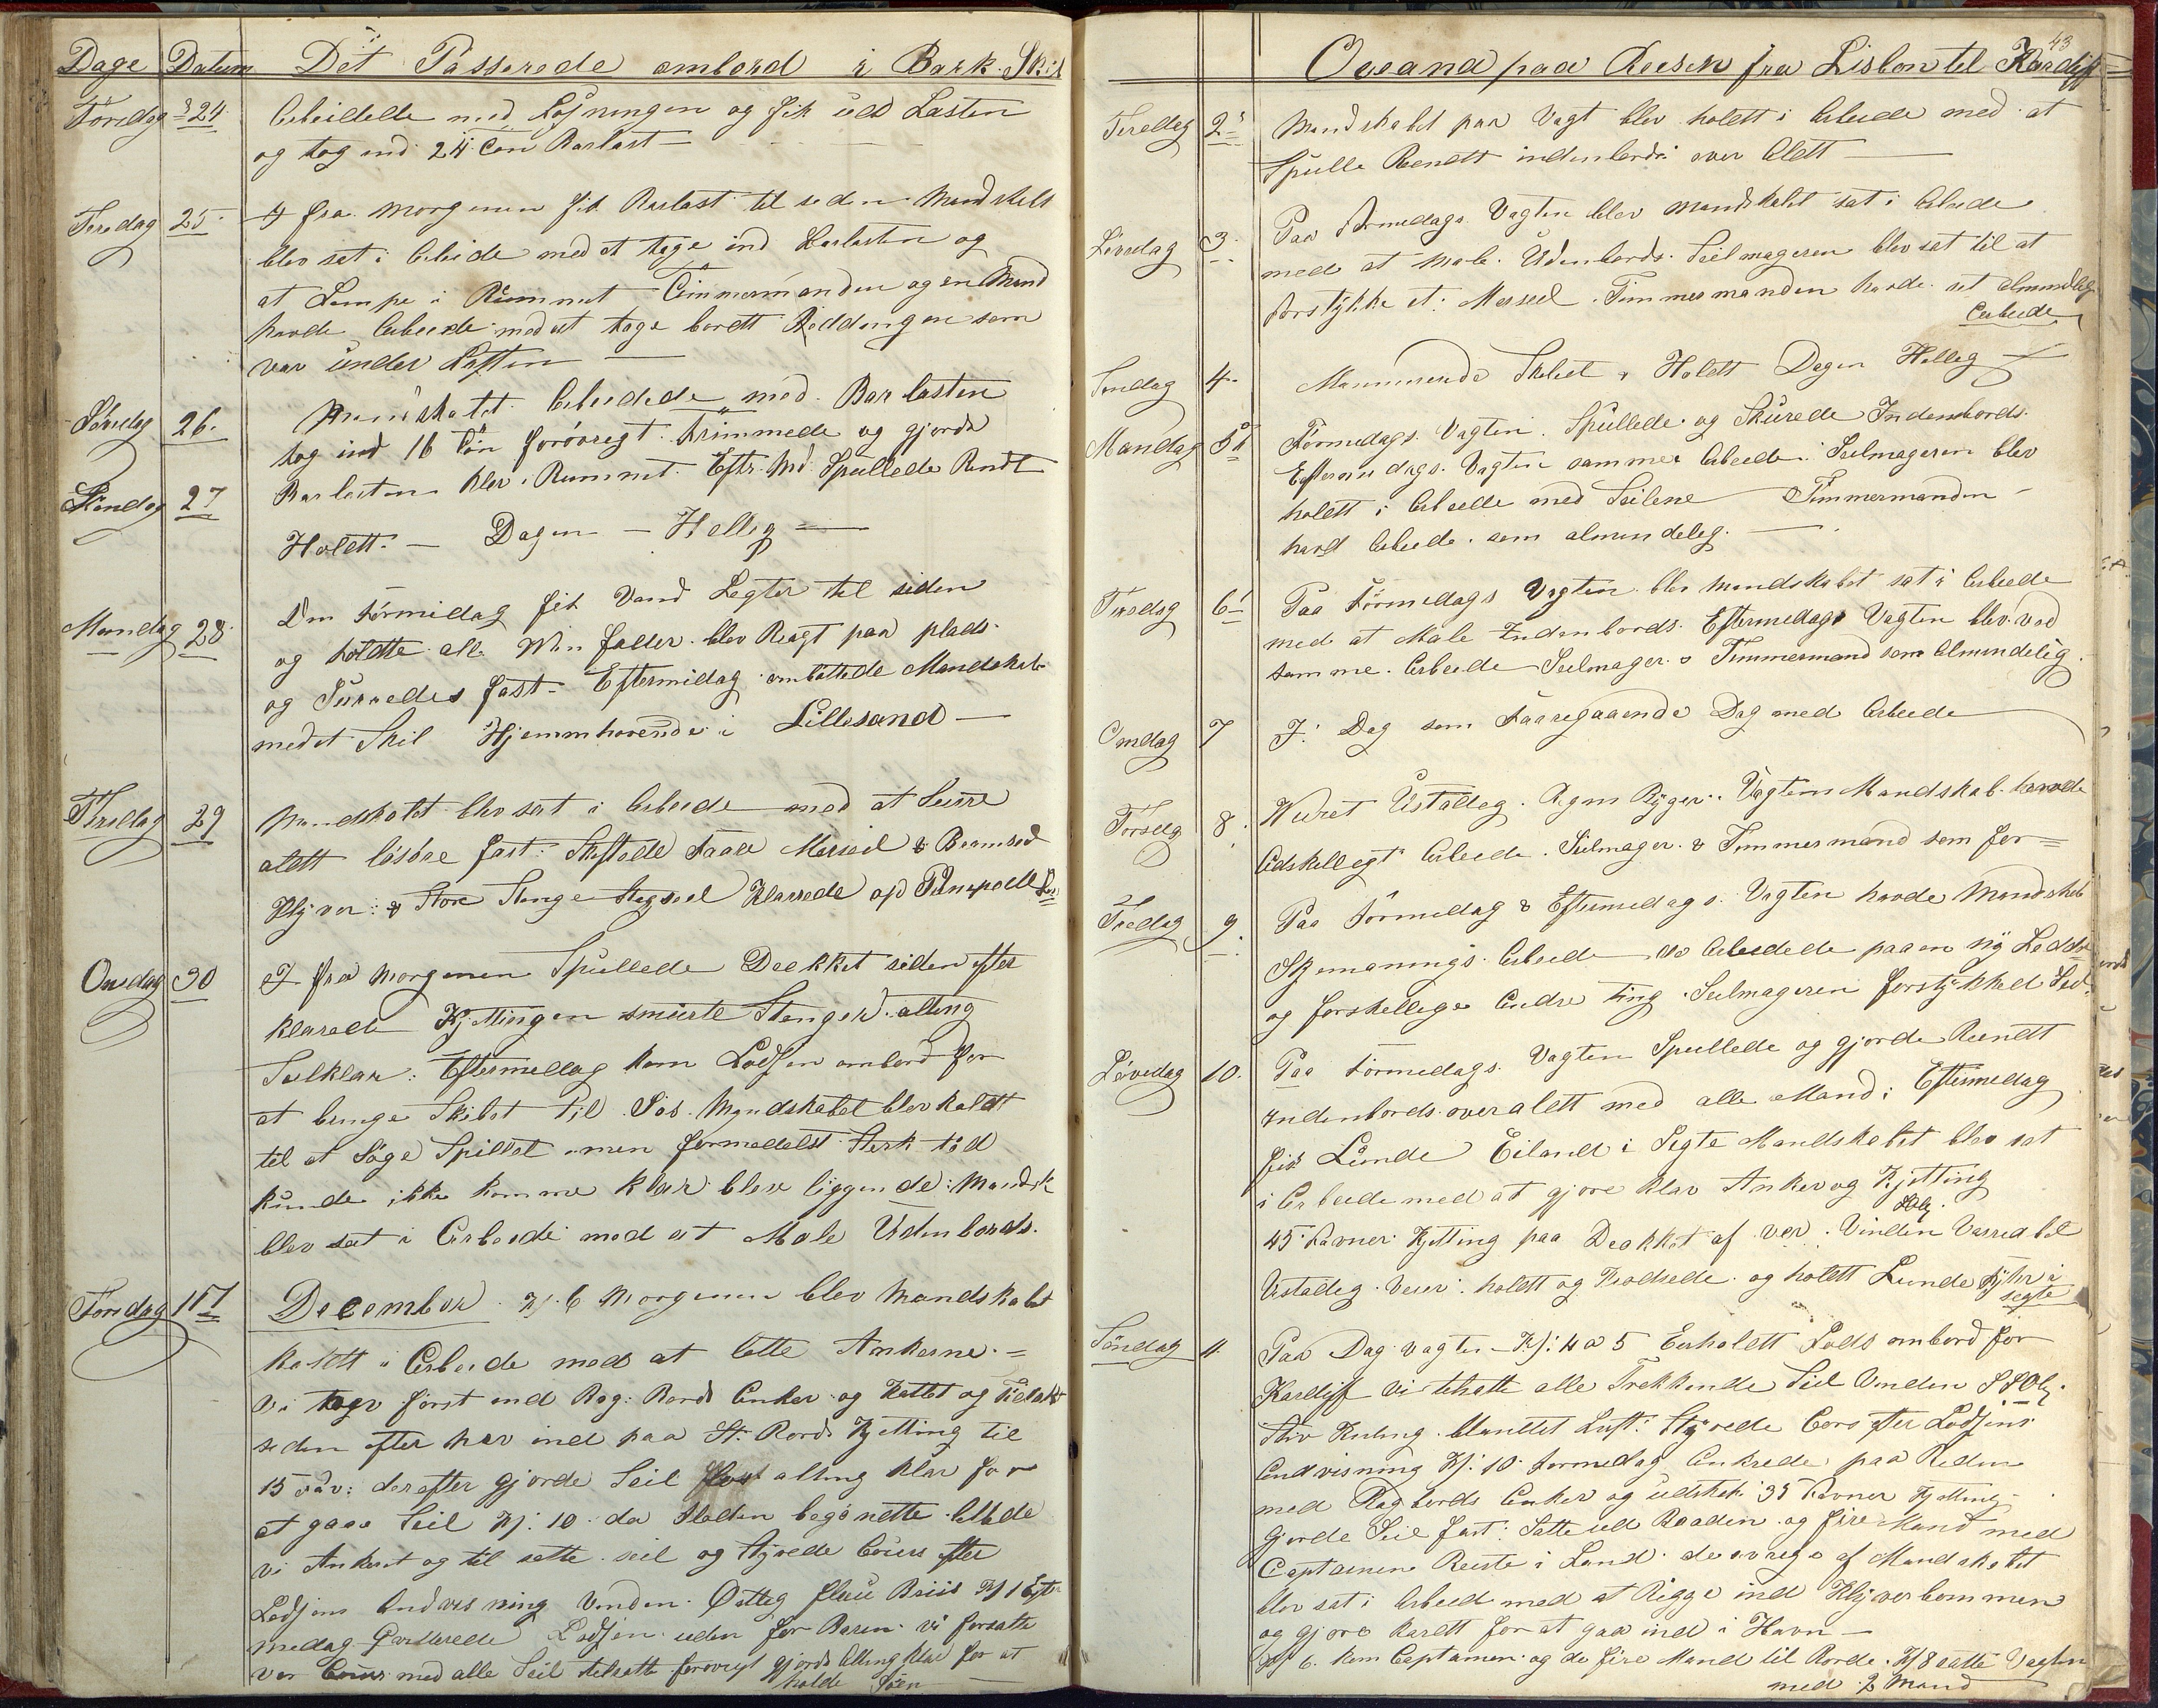 Dage Datum Det Passerede ombord i Bark Skib
Torsdag 24 Arbeidede med Losningen og fik ud Lasten
og tog ind 24 Ton Barlast —
Fredag 25 fra Morgenen fik Barlast til siden Mandskabt
blev sat i Arbeide med at tage ind Barlasten og
at Lempe i Rummet Timmermanden og en Mand
havde Arbeide med at tage bordt som
var under Lasten —
Løverdag 26. Mandskabet Arbeidede med Barlasten
tog ind 16 Ton forøvrigt trimmede og gjorde
Barlasten klar i Rummet. Spullede Rundt
Söndag 27 Holdt — Dagen — Hellig —
Mandag 28 Om Formidag fik Vand Legter til siden
og fyldte alle blev Bragt paa plads
og Surredes fast — Eftermidag Mandskab
med et Skib Hjemmhørende i Lillesand —
Tirsdag 29 Mandskabet blev sat i Arbeide med at Surre
aldt løsøre fast: Skiftede Faare Merseil & Bramseil
Klyver & Store Stenge Stagseil Klarrede op
Onsdag 30 fra Morgenen Spullede Dækket siden efter
klarede Kjettingen smurte Stenger alting
Seilklar: Eftermidag kom Lodsen ombord for
at bringe Skibet til Søs. Mandskabet blev kaldt
til at Spillet men formedelst Sterk
kunde ikke komme klar blev liggende: Mandsk
blev sat i Arbeide med at Male Udenbords.
Torsdag 1st December. Kl. 6 Morgenen blev Mandskabet
kaldt i Arbeide med at lette Ankerne =
Vi tog først ind Bag: Bords Anker og Kattet og
siden efter hev ind paa St. Bords Kjetting til
15 Fav: derefter gjorde Seil alting klar for
at gaae Seil Kl: 10 da begynte lettede
vi Ankeret og til satte seil og styrede Cours efter
Lodsens Andvisning Vinden Østlig flau Briis Kl 1 Efter
medag Lodsen uden for Baren vi forsatte
vor Cours med alle Seil tilsatte forøvrigt gjorde Alting klar for at
holde Søen —
43
Oceana paa Reisen fra Lisbon til Kardiff
Fredag 2 Mandskabet paa Vagt blev holdt i Arbeide med at
Spulle Rundt indenbords over aldt —
Løverdag 3. Paa Formedags Vagten blev Mandskabet sat i Arbeide
med at Male Udenbords. Seilmageren blev sat til at
forstykke et Merseil. Timmermanden havde sit almindlig
Arbeide
Söndag 4. Skibet & Holdt Dagen Hellig —
Mandag 5 Formedags Vagten Spullede og Skurede Indenbords
Eftermedags Vagten samme Arbeide. Seilmageren blev
holdt i Arbeide med Seilene Timmermanden
havd Arbeide som almindelig. —
Tirsdag 6 Paa Formedags Vagten blev Mandskabet sat i Arbeide
med at Male Indenbords. Eftermedags Vagten blev ved
samme Arbeide Seilmager & Timmermand som Almindelig.
Onsdag 7 I Dag som Faaregaaende Dag med Arbeide
Torsdag 8. Veiret Ustadig. Regn Byger. Vagtens Mandskab havde
Adskilligt Arbeide. Seilmager & Timmermand som før =
Fredag 9. Paa Formedag & Eftermedags Vagten havde Mandskab
Arbeide Arbeidede paa en ny
og forskellige Andre ting. Seilmageren forstykkede Seil
Løverdag 10. Paa Formedags Vagten Spullede og gjorde Rundt
Indenbords overaldt med alle Mand: Eftermedag
fik Lunde Eiland i Sigte Mandskabet blev sat
i Arbeide med at gjøre klar Anker og Kjetting
45 Favner Kjetting paa Dækket af ver. Vinden
Ustadig Veir: holdt og Krodsede og holdt Lunde Fyhr i
sigte
Söndag 11. Paa Dag vagten Kl: 4 a 5 Erholdt Lods ombord for
Kardiff vi tilsatte alle Trekkende Seil Vinden
Stiv Kuling blandet Luft: Styrede Cors efter Lodsens
Andvisning Kl: 10 Formedag Ankrede paa Reden
med Bagbords Anker og udstak 35 Favner Kjetting
gjorde Seil fast: Satte ud Baaden og fire Mand med
Captainen Reiste i Land de øvrige af Mandskabet
blev sat i Arbeid med at Rigge ind Klyverbommen
og gjøre klardt for at gaa ind i Havn —
Kl 6. kom Captainen og de fire Mand til Borde. Kl 8 satte Vagten
med 2 Mand